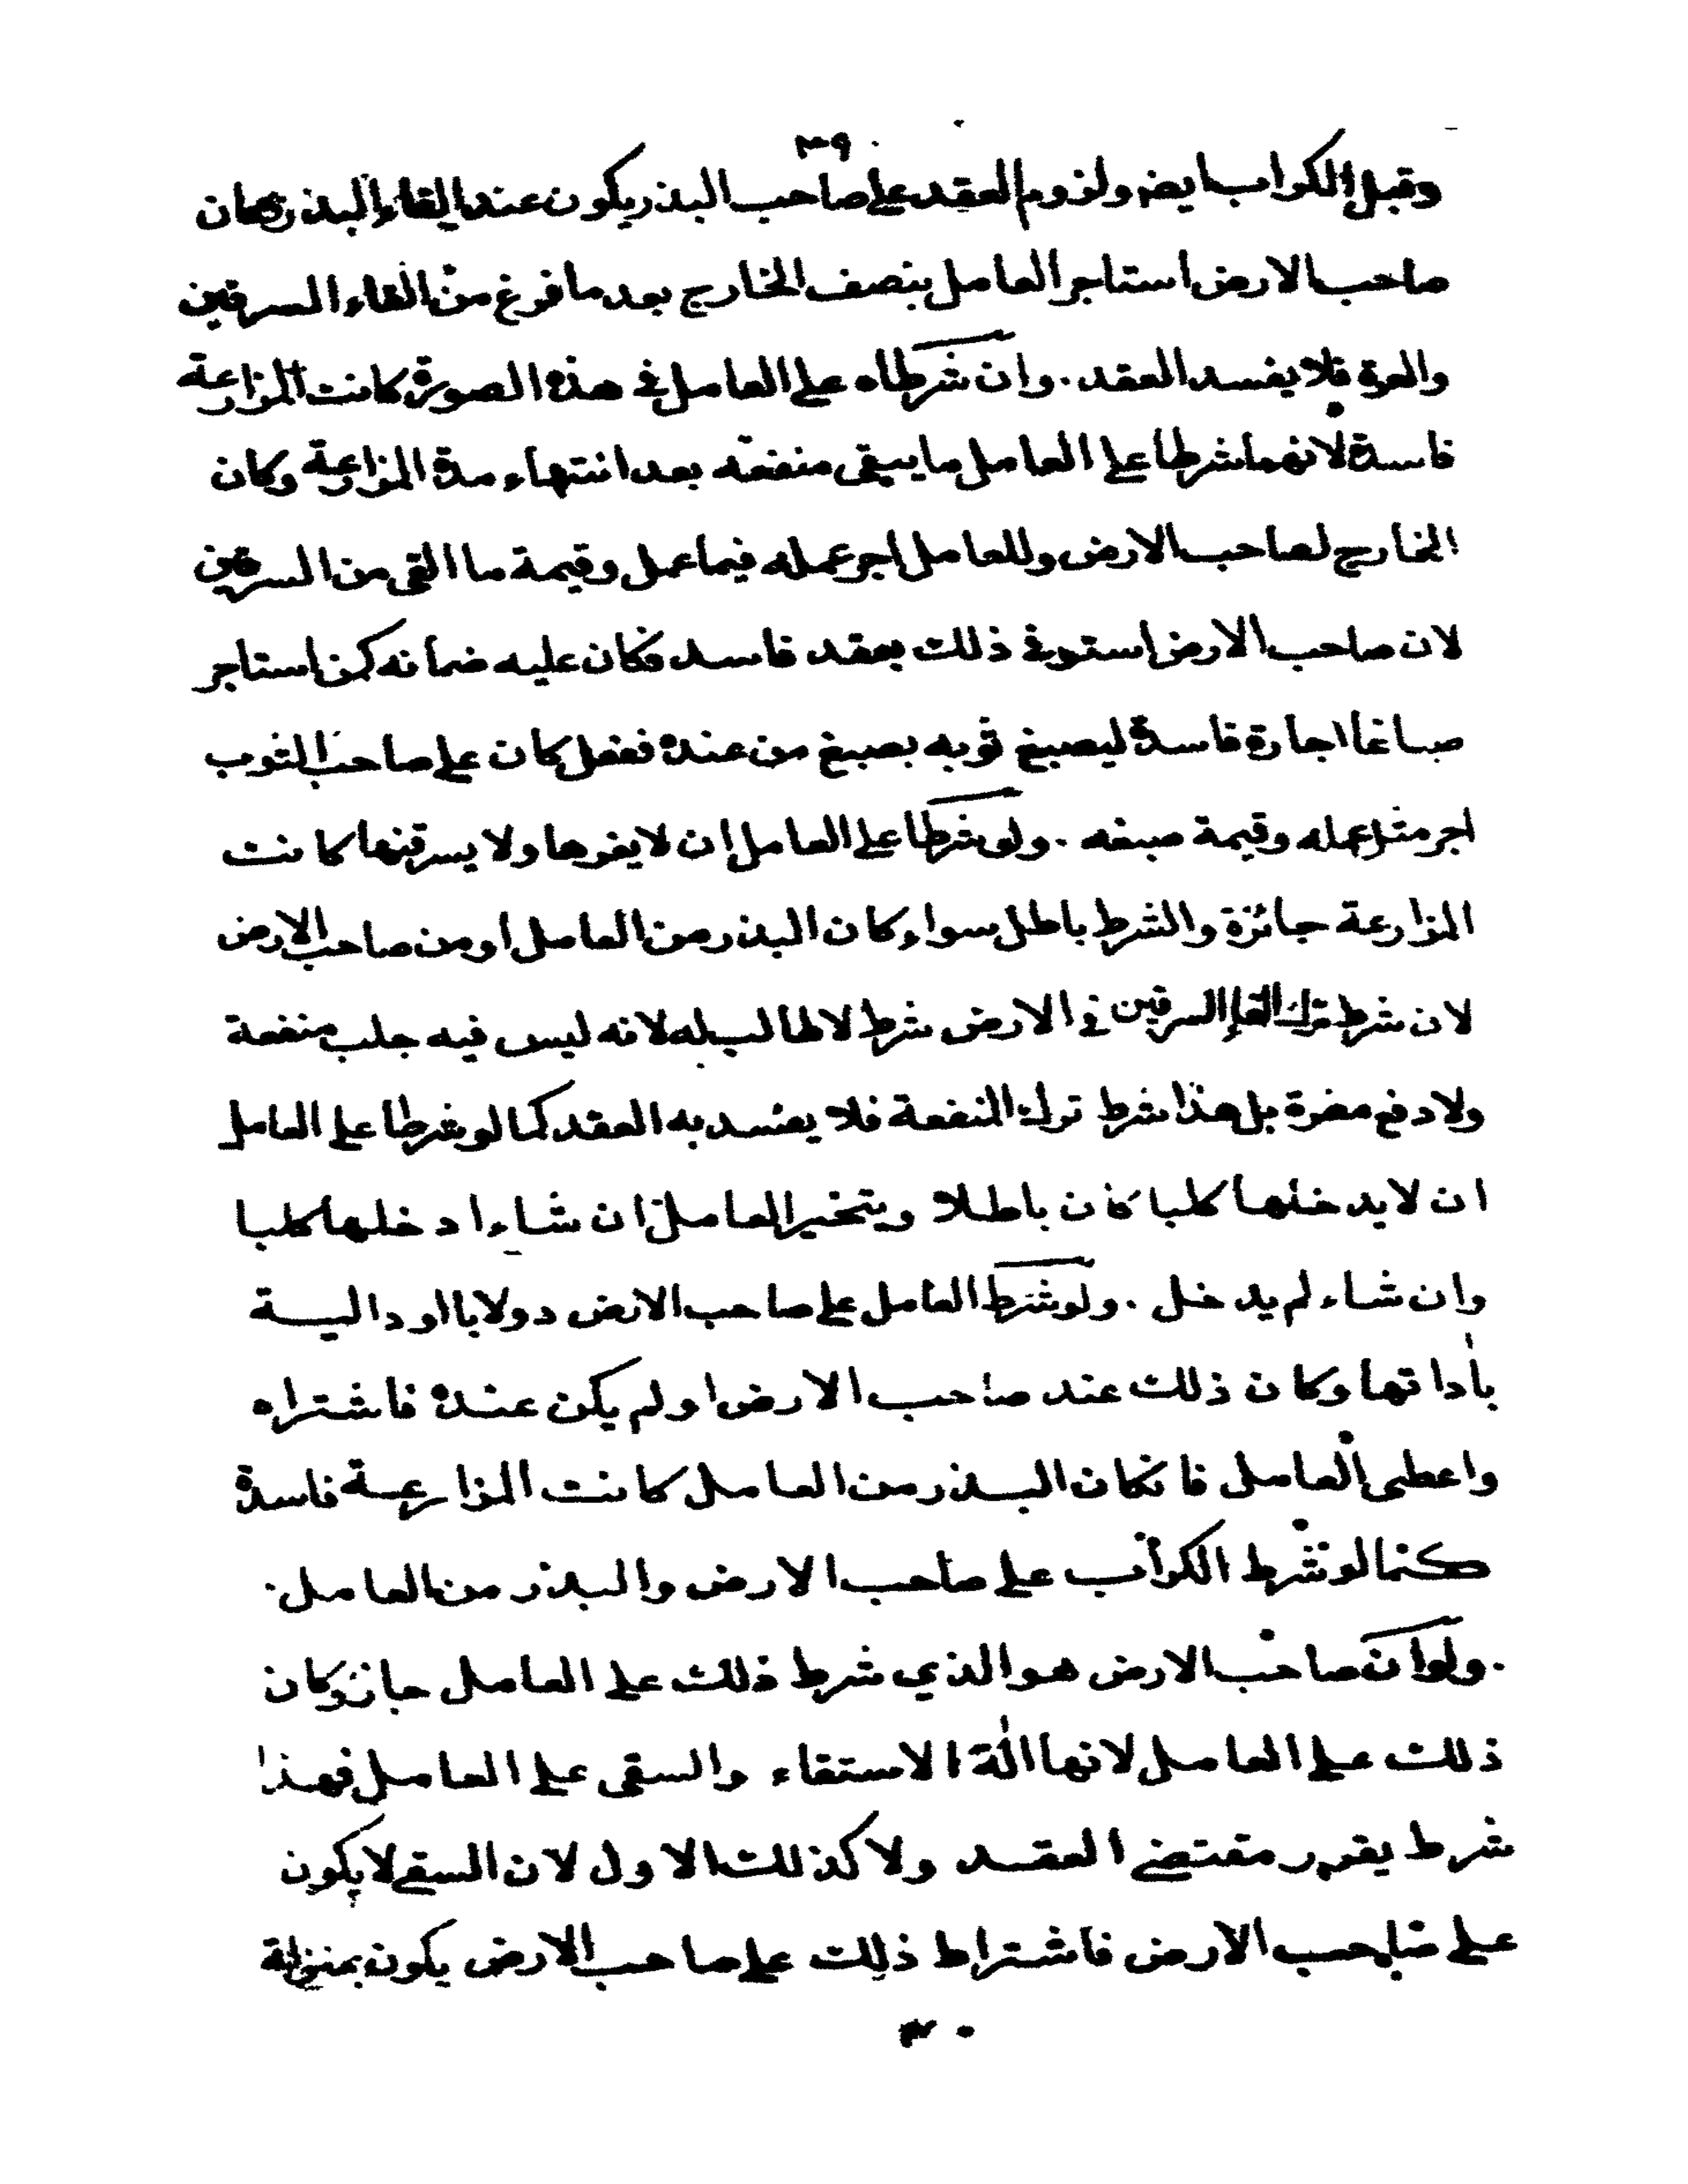 ٣٩
وقبل الكراب ايضا ولزوم العقد على صاحب البذر يكون عند القاء البذر فكان
صاحب الارض استاجر العامل بنصف الخارج بعد ما فرغ من القاء السرقين
والعرة فلا يفسد العقد . وان شرطاه على العامل في هذه الصورة كانت المزارعة
فاسدة لانهما شرطا على العامل ما يبقى منفعته بعد انتهاء مدة المزارعة وكان
الخارج لصاحب الارض وللعامل اجر عمله فيما عمل وقيمة ما القى من السرقين
لان صاحب الارض استوفى ذلك بعقد فاسد فكان عليه ضمانه كمن استاجر
صباغا اجارة فاسدة ليصبغ ثوبه بصبغ من عنده ففعل كان على صاحب الثوب
اجر مثل عمله وقيمة صبغه . ولو شرطا على العامل ان لا يعرها ولا يسرقنها كانت
المزارعة جائزة والشرط باطل سواء كان البذر من العامل او من صاحب الارض
لان شرط ترك القاء السرقين في الارض شرط لا طالب له لانه ليس فيه جلب منفعة
ولا دفع مضرة بل هذا شرط ترك المنفعة فلا يفسد به العقد كما لو شرطا على العامل
ان لا يدخلها كلبا كان باطلا ويتخير العامل ان شاء ادخلها كلبا
وان شاء لم يدخل . ولو شرط العامل على صاحب الارض دولابا او دالية
باداتها وكان ذلك عند صاحب الارض او لم يكن عنده فاشتراه
واعطى العامل فان كان البذر من العامل كانت المزارعة فاسدة
كما لو شرط الكراب على صاحب الارض والبذر من العامل
. ولو ان صاحب الارض هو الذي شرط ذلك على العامل جاز وكان
ذلك على العامل لانها الة الاستقاء والسقى على العامل فهذا
شرط يقرر مقتضى العقد ولا كذلك الاول لان السقي لا يكون
على صاحب الارض فاشتراط ذلك على صاحب الارض يكون بمنزلة